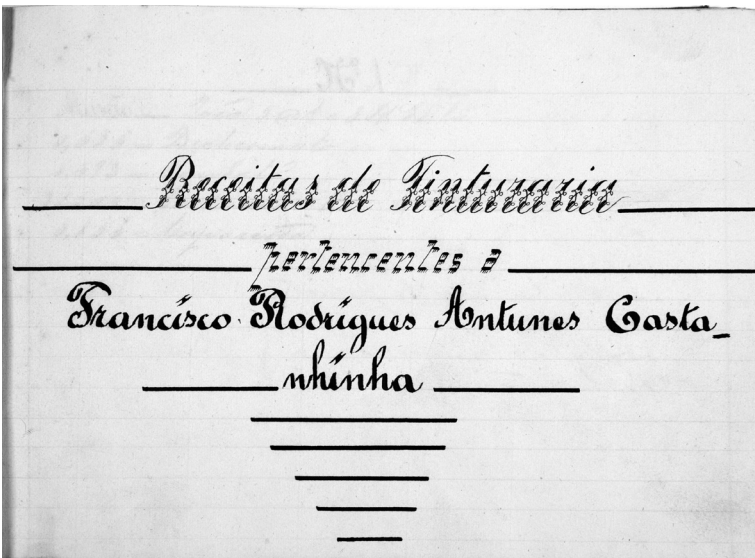 Receitas de Tinturaria
pertencentes a
Francisco Rodrigues Antunes Casta_
nhinha